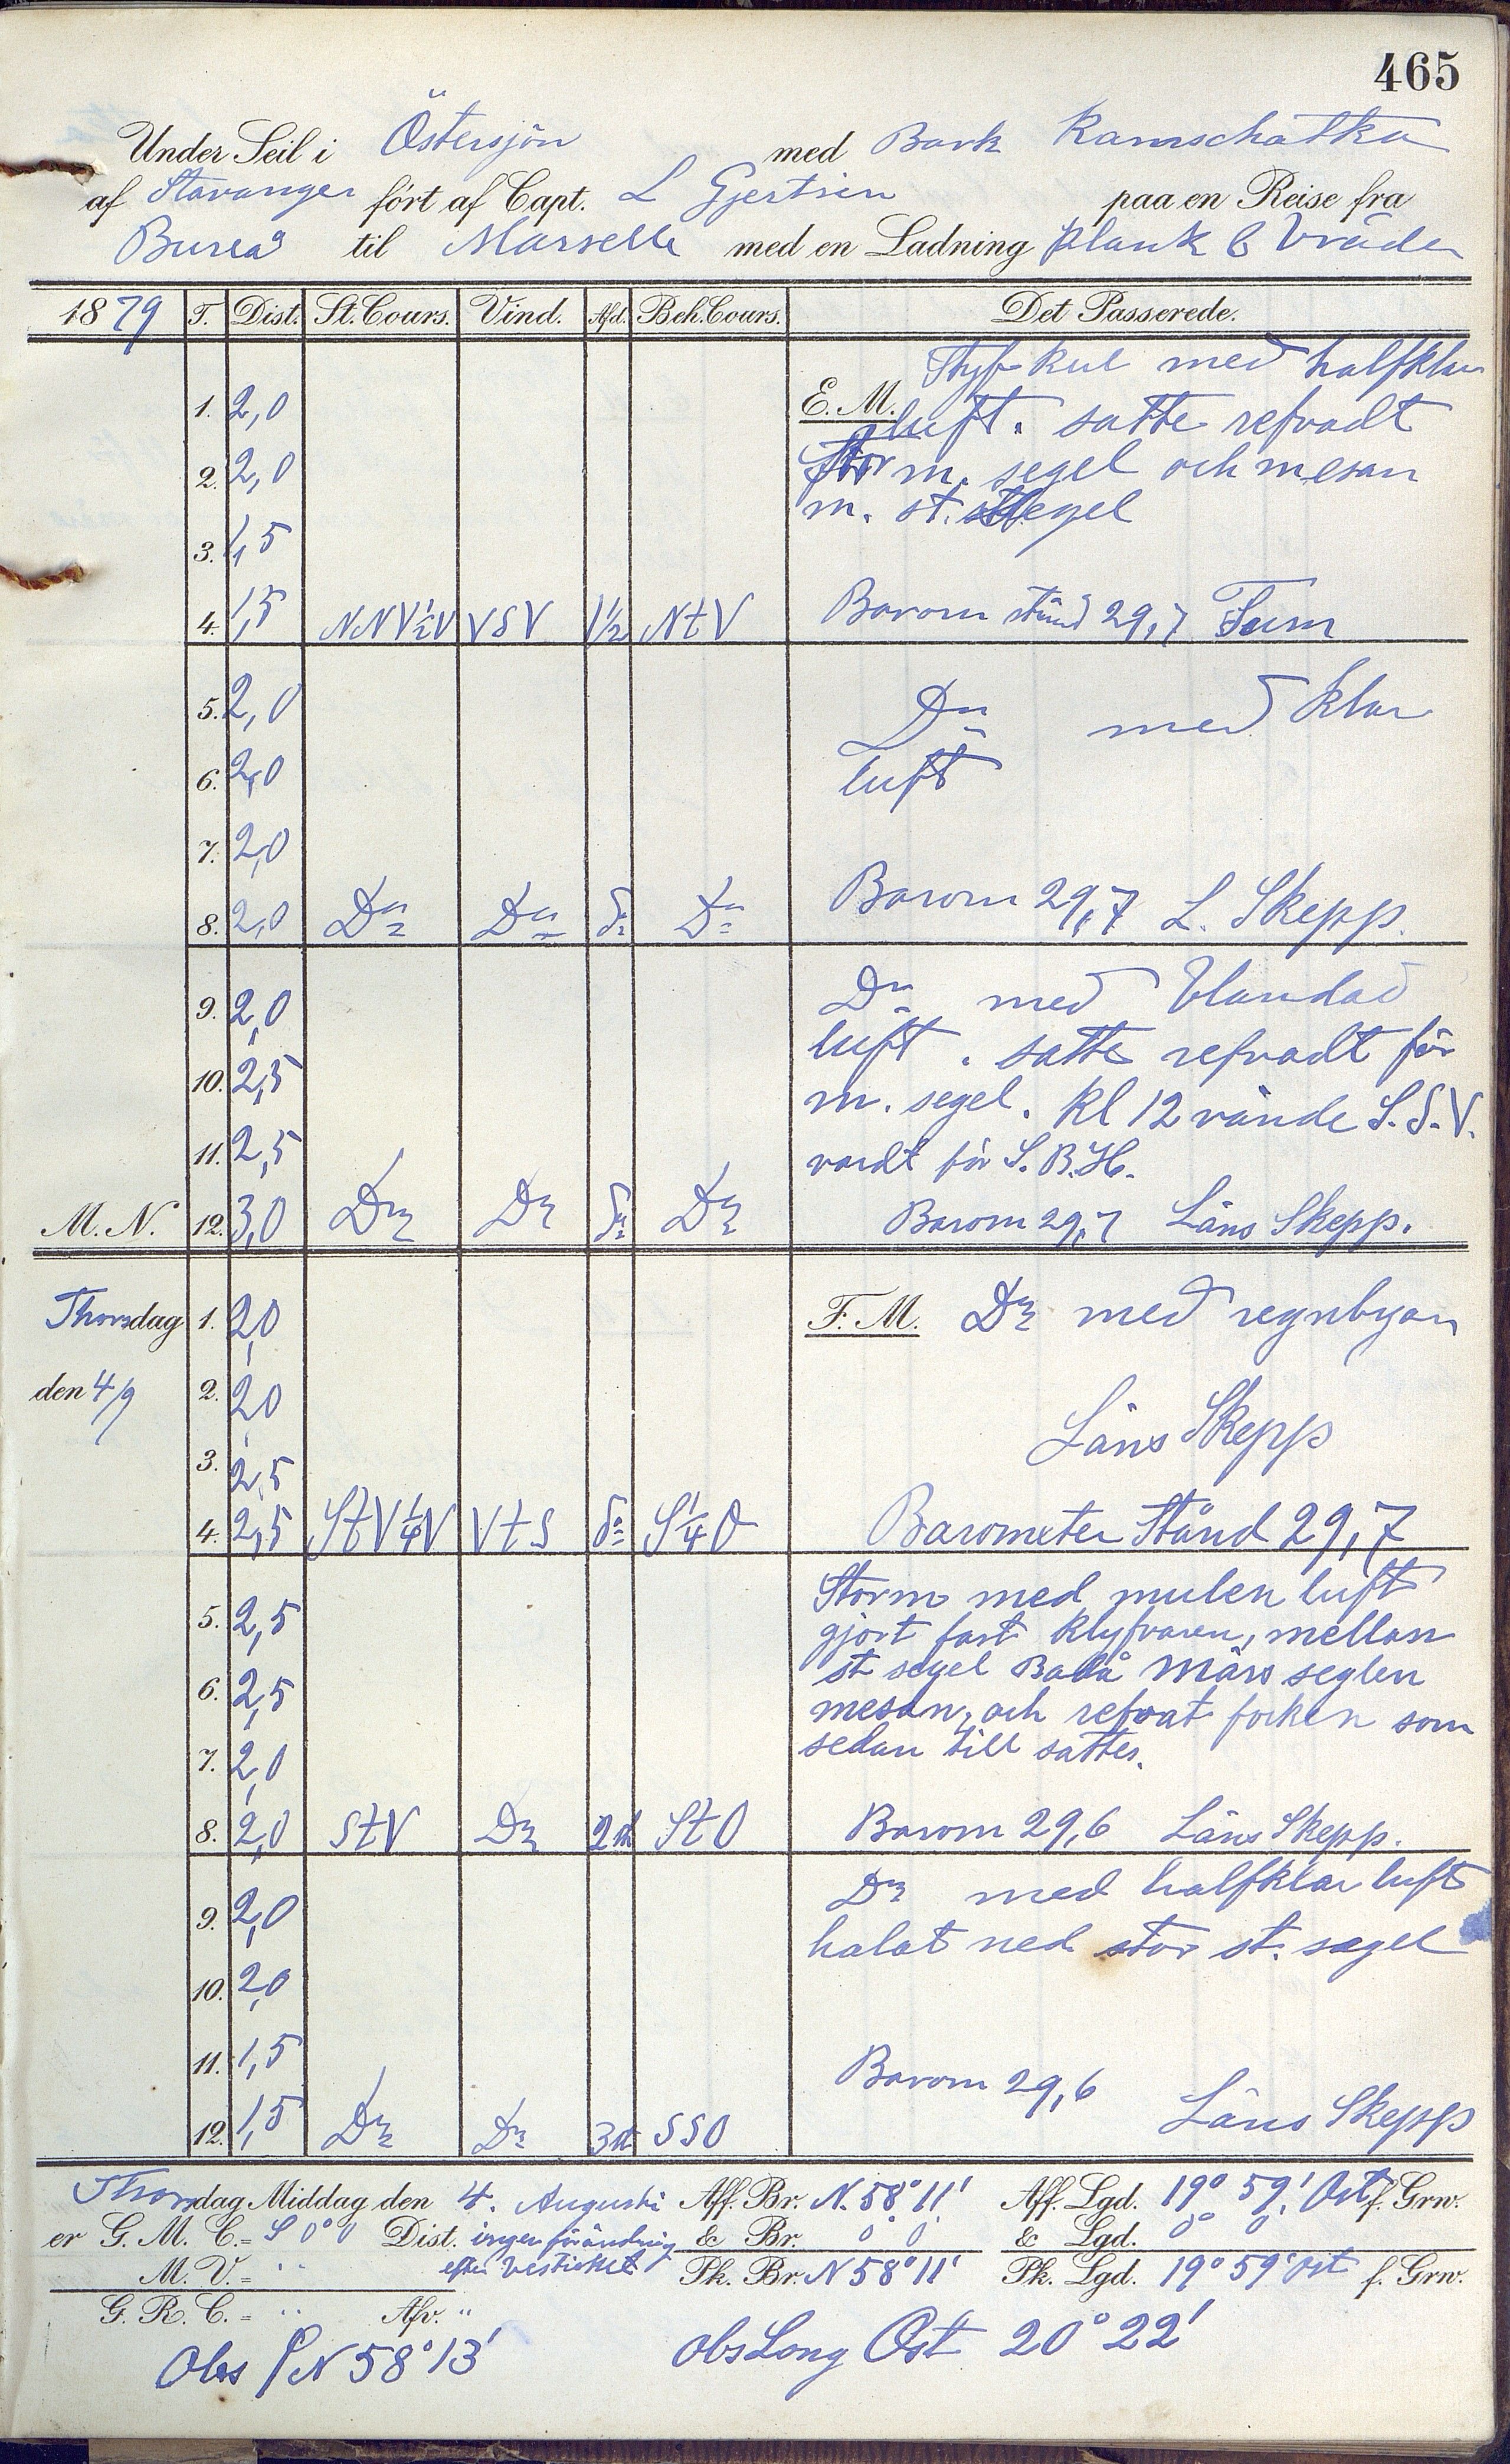 465
Under Seil i Östersjön med Bark Kamschatka
af Stavanger ført af Capt. L Gjertsen paa en Reise fra
Bureå til Marselle med en Ladning plank & bräder
1879 T. Dist. St. Cours. Vind. Afd. Beh. Cours. Det Passerede.
Styf kul med halfklar
1. 2,0 E. M. luft. satte refvadt
2. 2,0 stor m. segel och mesan
m. st. segel
3. 1,5
4. 1,5 NNV½V VSV 1½ NtV Barom stånd 29,7
5. 2,0 Do med klar
6. 2,0 luft
7. 2,0
8. 2,0 Do Do do Do Barom 29,7 L. Skepp.
9. 2,0 Do med blandad
luft. satte refvadt för
10. 2,5 m. segel. Kl 12 vände S.S.V.
11. 2,5 vardt för S. B. H.
M. N. 12. 3,0 Do Do do Do Barom 29,7 Läns Skepp.
Thorsdag 1. 2,0 F. M. Do med regnbyar
den 4/9 2. 2,0
Läns Skepp
3. 2,5
4. 2,5 StV¼V VtS do S¼O Barometer Stånd 29,7
Storm med mulen luft
5. 2,5 gjort fast klyfvaren, mellan
st segel Båda märs seglen
6. 2,5 mesan, och refvat focken som
7. 2,0 sedan till sattes.
8. 2,0 StV Do 2 st StO Barom 29,6 Läns Skepp.
Do med halfklar luft
9. 2,0 halat ned stor st. segel
10. 2,0
11. 1,5 Barom 29,6
12. 1,5 Do Do 3 st SSO Läns Skepp
Thorsdag Middag den 4. Augusti Aff. Br. N. 58° 11' Aff. Lgd. 19° 59' Ost f. Grw.
er G. M. C. = S 0° 0 Dist. ingen förändring & Br. 0 0 & Lgd. 0° 0
M. V. = " efter besticket Pk. Br. N 58° 11' Pk. Lgd. 19° 59' Ost f. Grw.
G. R. C. = " Afv. "
Obs N 58° 13' obs Long Ost 20° 22'